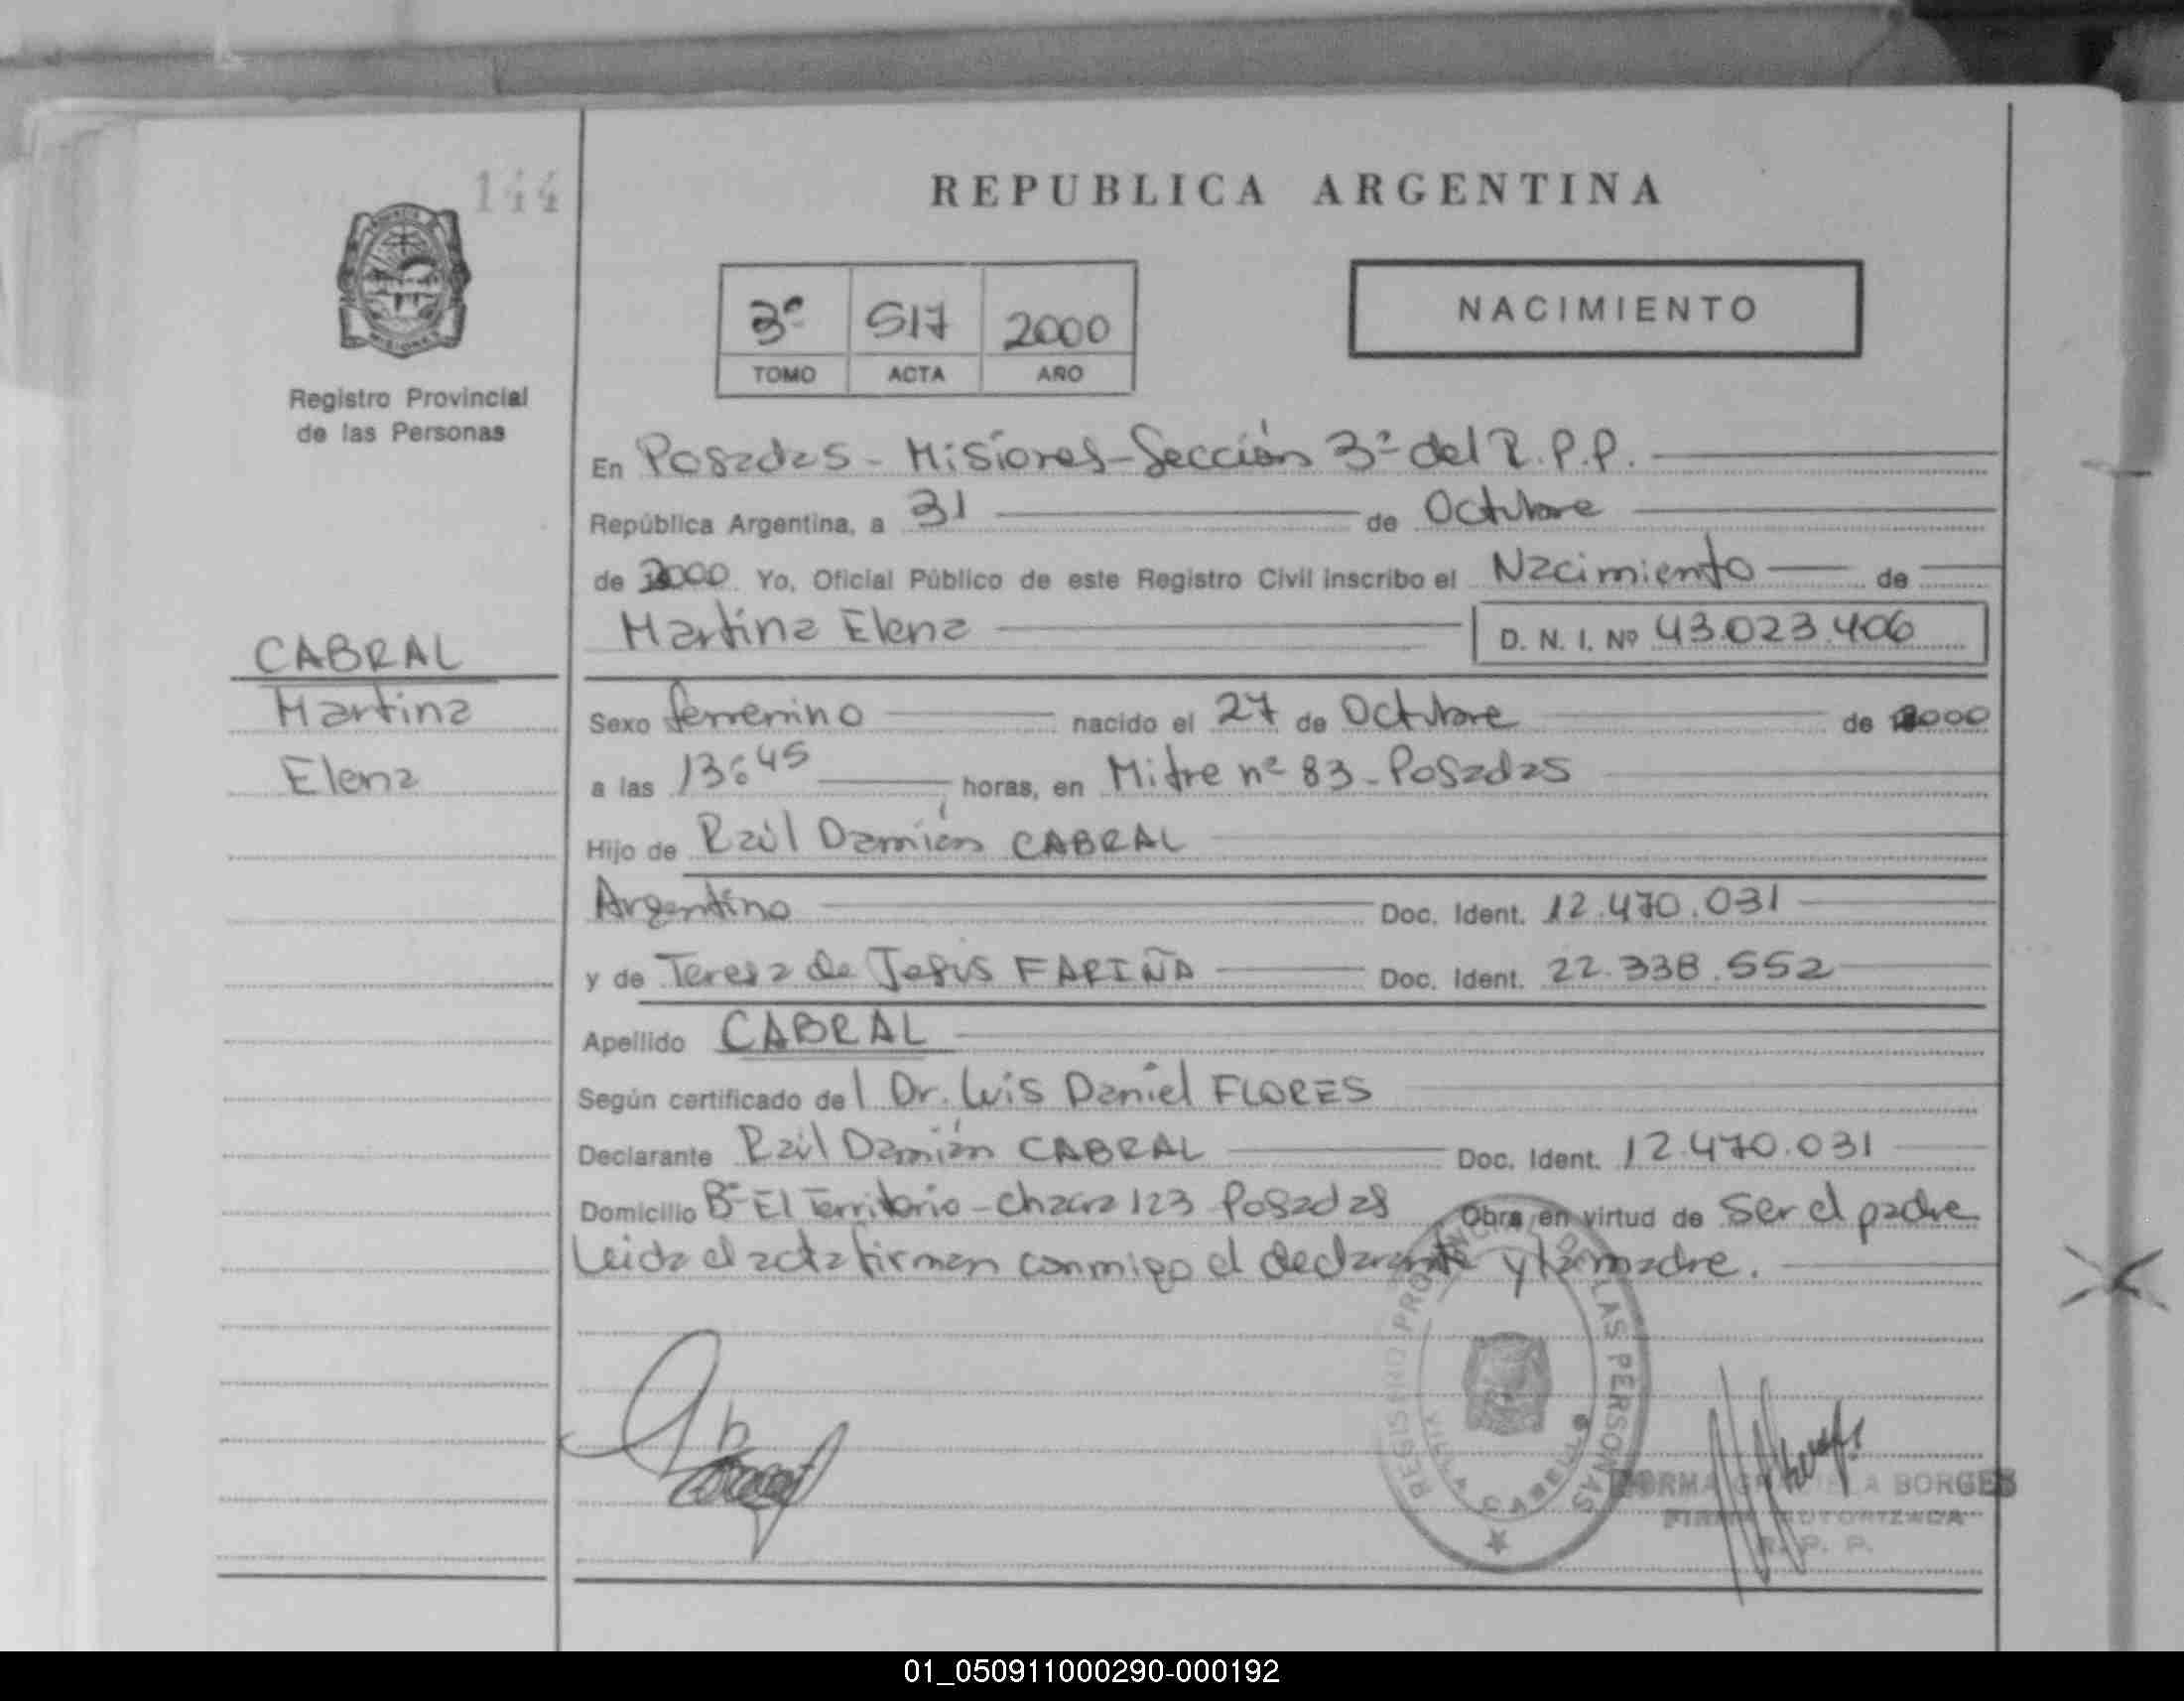 144
REPUBLICA ARGENTINA
3º 517 2000
TOMO ACTA AÑO
NACIMIENTO
Registro Provincial
de las Personas
En Posadas - Misiones - Sección 3ª del R.P.P.
República Argentina, a 31 de Octubre
de 2000 Yo, Oficial Público de este Registro Civil inscribo el Nacimiento de
Martina Elena D. N. I. Nº 43.023.406
CABRAL
Martina
Elena
Sexo femenino nacido el 27 de Octubre de 2000
a las 13:45 horas, en Mitre nº 83 - Posadas
Hijo de Raúl Damián CABRAL
Argentino Doc. Ident. 12.470.031
y de Teresa de Jesús FARIÑA Doc. Ident. 22.338.552
Apellido CABRAL
Según certificado del Dr. Luis Daniel FLORES
Declarante Raúl Damián CABRAL Doc. Ident. 12.470.031
Domicilio Bº El Territorio - Chacra 123 Posadas Obra en virtud de ser el padre
Leida el acta firman conmigo el declarante y la madre.
REGISTRO PROVINCIAL DE LAS PERSONAS
NORMA GRACIELA BORGES
FIRMA AUTORIZADA
R. P. P.
01_050911000290-000192